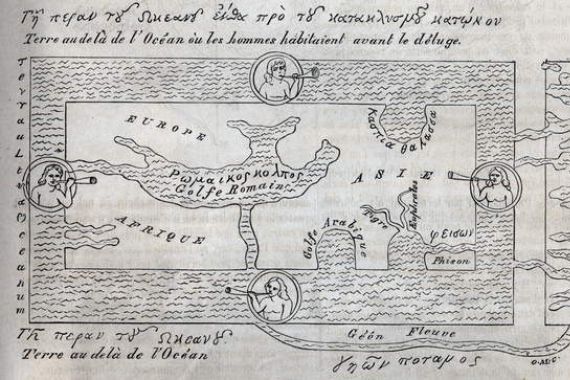 Γῆ περαν τοῦ Ωκεανοῦ ἔνθα πρὸ τοῦ κατακλυσμοῦ κατώκουν
Terre au delà de l'Océan où les hommes habitaient avant le déluge.
EUROPE
Κασπία θαλασσα
Ρωμαικος κολπος
Golfe Romain
ASIE
Terra ultra Oceanum
AFRIQUE
Golfe Arabique
Tigre
Euphrates
φεισων
Phison
Géon Fleuve
Γῆ περαν τοῦ Ωκεανοῦ.
Terre au delà de l'Océan
γηῶν ποταμος